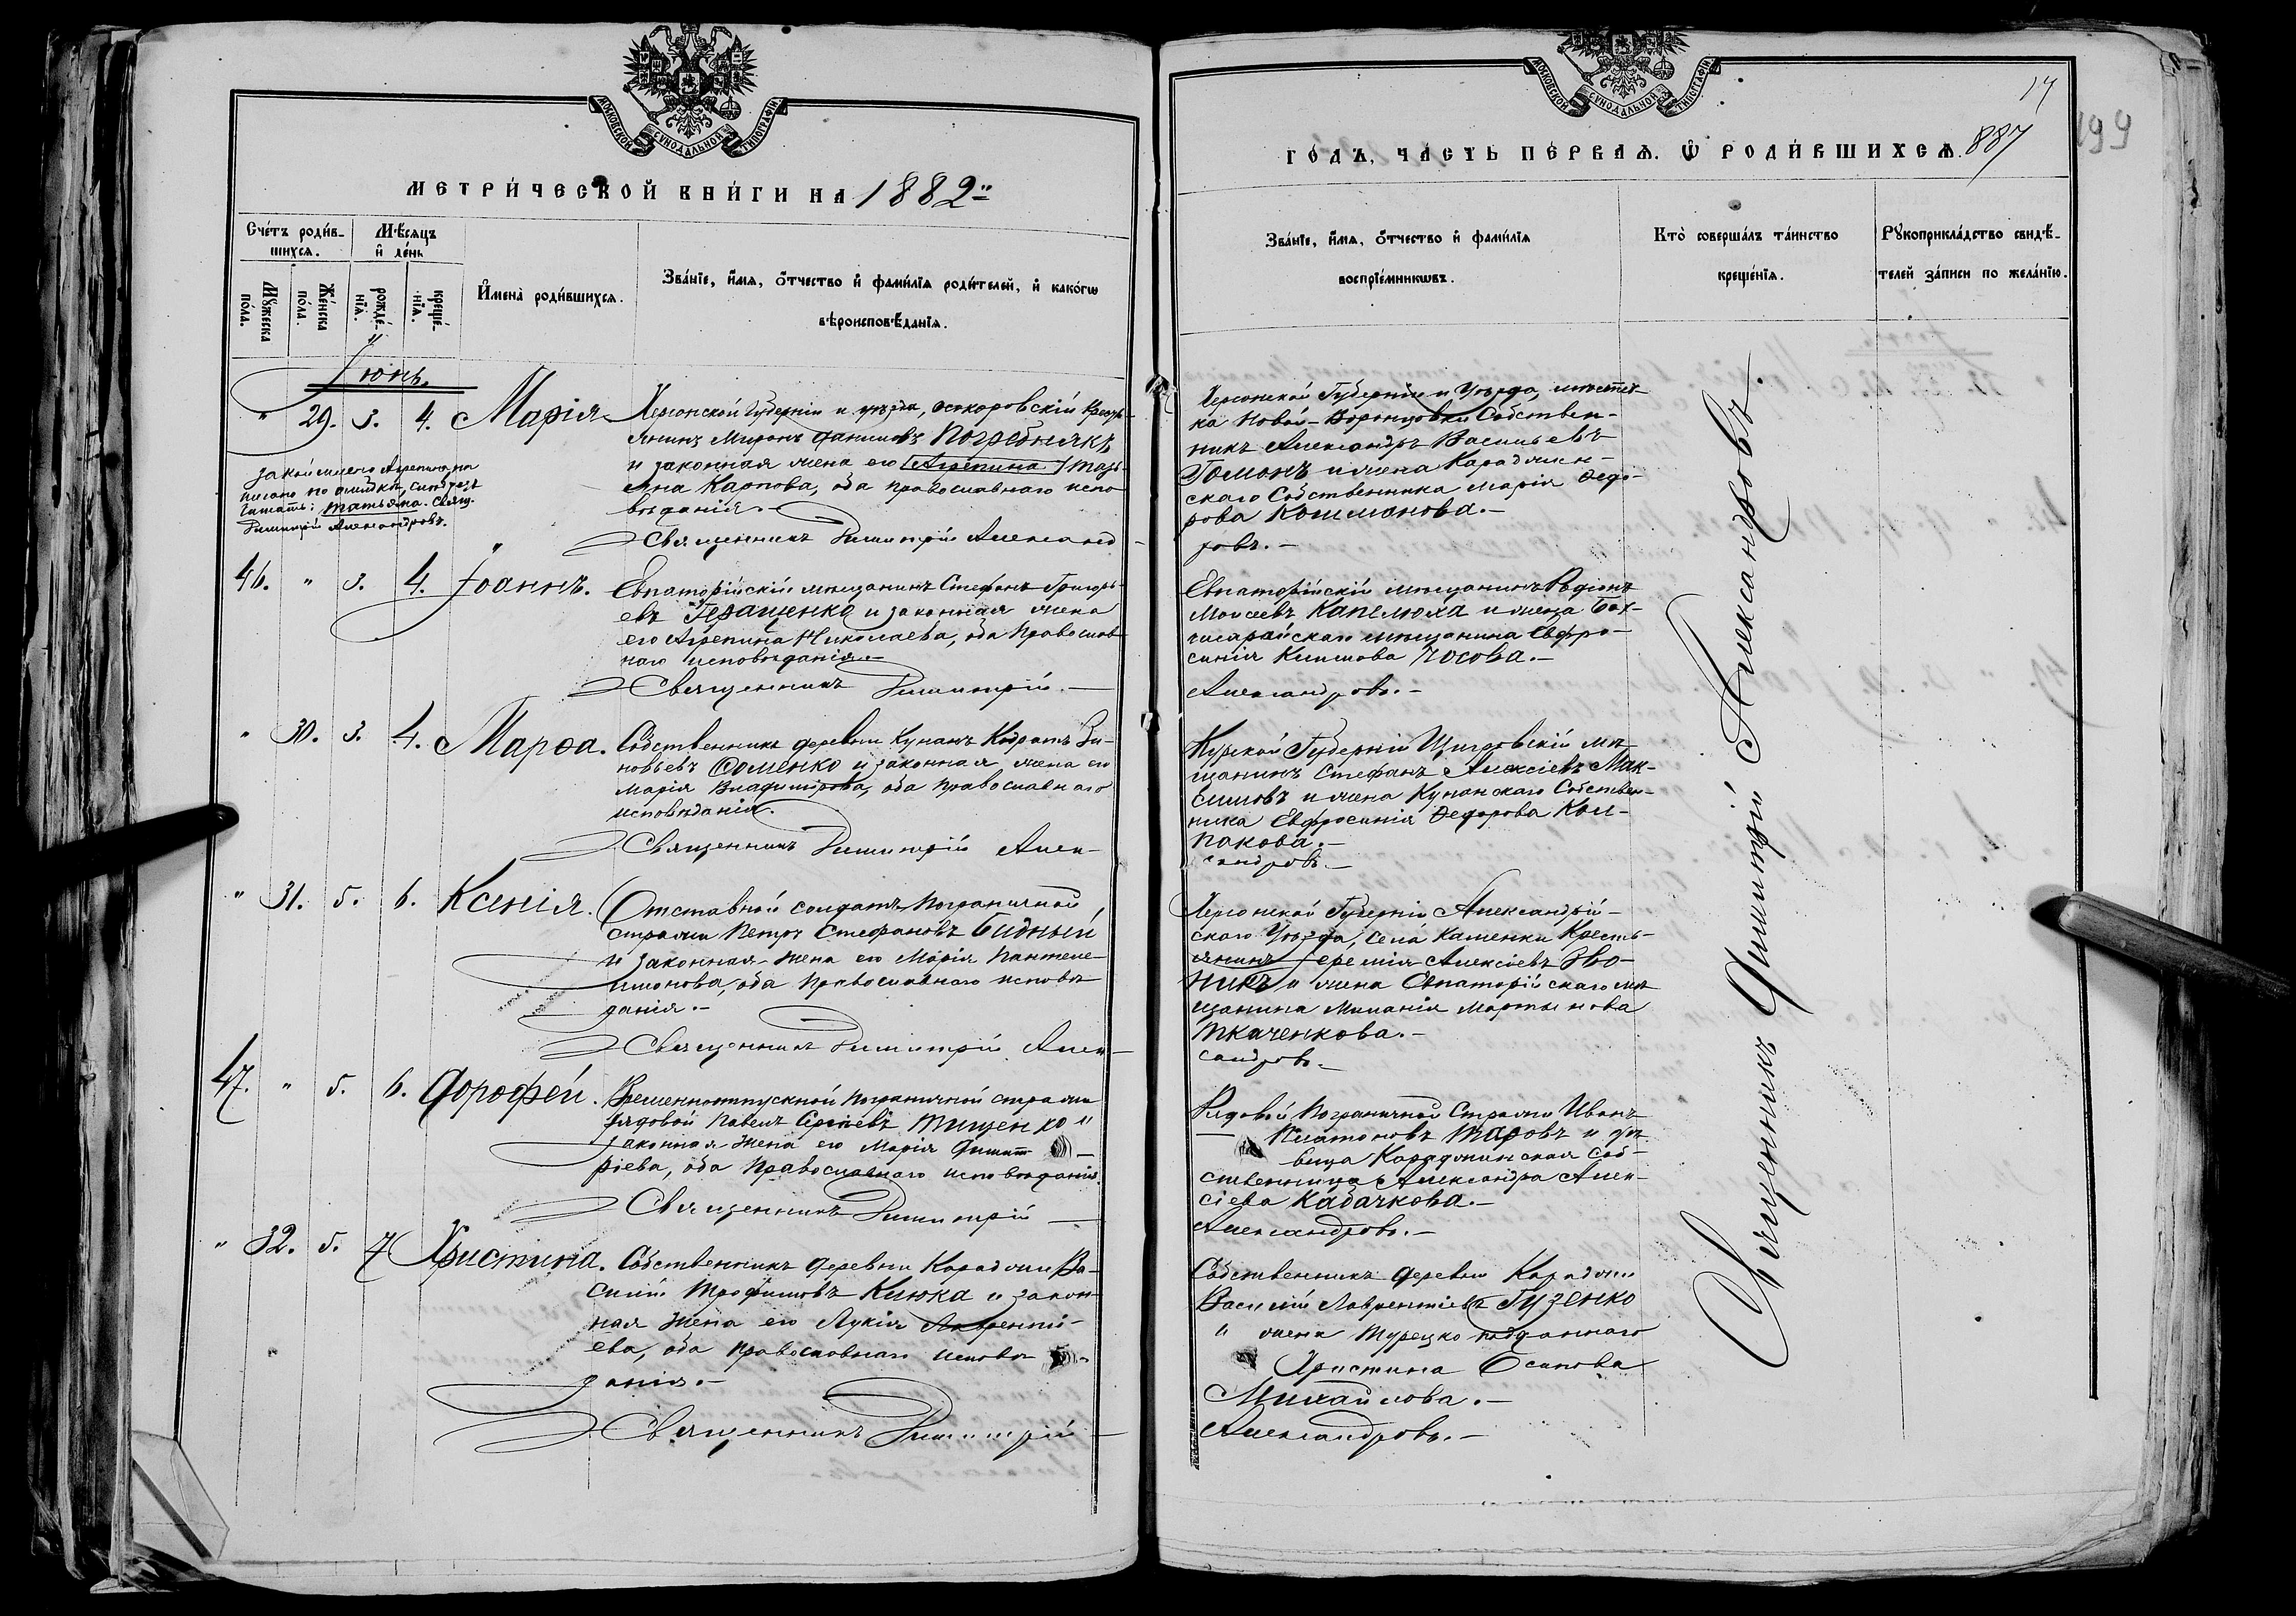 МОСКОВСКОЙ СѴНОДАЛЬНОЙ ТИПОГРАФІИ
МЕТРИ́ЧЕСКОЙ КНИ́ГИ НА 1882й
Сче́тъ роди́в-
шихся.
Мѣ́сяцъ
и҆ де́нь
Мꙋ́жеска
по́ла.
Же́нска
по́ла.
рожде́-
нїѧ.
креще́-
нїѧ.
И҆мена̀ роди́вшихсѧ.
Зва́нїе, и҆́мѧ, ѻ҆́тчество и҆ фами́лїѧ роди́телей, и҆ како́гѡ
вѣроисповѣ́данїѧ.
Іюнь.
" 29. 3. 4. Марія
Херсонской Губерніи и уѣзда, осокоровскій Кресть-
янинъ Миронъ Даниловъ Погребнякъ
и законная жена его (Агрепина) Тать-
яна Карпова, оба православнаго испо-
вѣданія.-
за коймленого Агрепина на
писано по ошибкѣ, слѣдуетъ
читать: Татьяна. Свящ.
Димитрій Александровъ.
Священникъ Димитрій Александ-
46. " 3. 4. Іоаннъ.
Евпаторійскій мѣщанинъ Стефанъ Григорь-
евъ Геращенко и законная жена
его Агрепина Николаева, оба Православ-
наго исповѣданія.-
Священникъ Димитрій.-
" 30. 3. 4. Марѳа.
Собственникъ деревни Кунанъ Кодратъ Зи-
новьевъ Фоменко и законная жена его
Марія Владимірова, оба православнаго
исповѣданія.
Священникъ Димитрій Алек-
" 31. 5. 6. Ксенія.
Отставной солдатъ Пограничной
стражи Петръ Стефановъ Бидный
и законная жена его Марія Пантеле-
имонова, оба Православнаго исповѣ-
данія.-
Священникъ Димитрій Алек-
47. " 5. 6. Дорофей.
Временноотпускной пограничной стражи
рядовой Павелъ Сергіевъ Тищенко и
законная жена его Марія Димит-
ріева, оба Православнаго исповѣданія.
Священникъ Димитрій -
" 32. 5. 7 Христина.
Собственникъ деревни Караджи Ва-
силій Трофимовъ Клюка и закон-
ная жена его Лукія Лаврентіе-
ева, оба православнаго исповѣ-
данія.-
Священникъ Димитрій -
МОСКОВСКОЙ СѴНОДАЛЬНОЙ ТИПОГРАФІИ
17
199
ГО́ДЪ, ЧА́СТЬ ПЕ́РВАѦ. Ѽ РОДИ́ВШИХСѦ. 887
Зва́нїе, и҆́мѧ, ѻ҆́тчество и҆ фами́лїѧ
воспрїе́мникѡвъ.
Кто̀ соверша́лъ та́инство
креще́нїѧ.
Рꙋкоприкла́дство свидѣ́-
телей за́писи по жела́нїю.
Херсонской Губерніи и Уѣзда, мѣстеч-
ка Новой-Воронцовки Собствен-
никъ Александръ Васильевъ
Гоманъ и жена Караджин-
скаго Собственника Марія Ѳедо-
рова Кошманова.-
ровъ.-
Евпаторійскій мѣщанинъ Родіонъ
Моисеевъ Капелюха и жена Бах-
чисарайскаго мѣщанина Евфро-
синія Климова Чосова.-
Александровъ.-
Курской Губерніи Щигровскій мѣ-
щанинъ Стефанъ Алексіевъ Мак-
симовъ и жена Кунанскаго Собствен-
ника Евфросинія Ѳедорова Кол-
пакова.-
сандровъ.-
Херсонской Губерніи Александрій-
скаго Уѣзда, села Каменки Кресть-
янинъ Іеремія Алексіевъ Зво-
никъ и жена Евпаторійскаго мѣ-
щанина Миланія Мартынова
Ткаченкова.-
сандровъ.-
Рядовой Пограничной Стражи Иванъ
Платоновъ Таровъ и дѣ-
вица Караджинская Соб-
ственница Александра Алек-
сіева Кабачкова.-
Александровъ.-
Собственникъ деревни Караджи
Василій Лаврентіевъ Гузенко
и жена Турецко подданнаго
Христина Осипова
Михайлова.-
Александровъ.-
Священникъ Димитрій Александровъ.